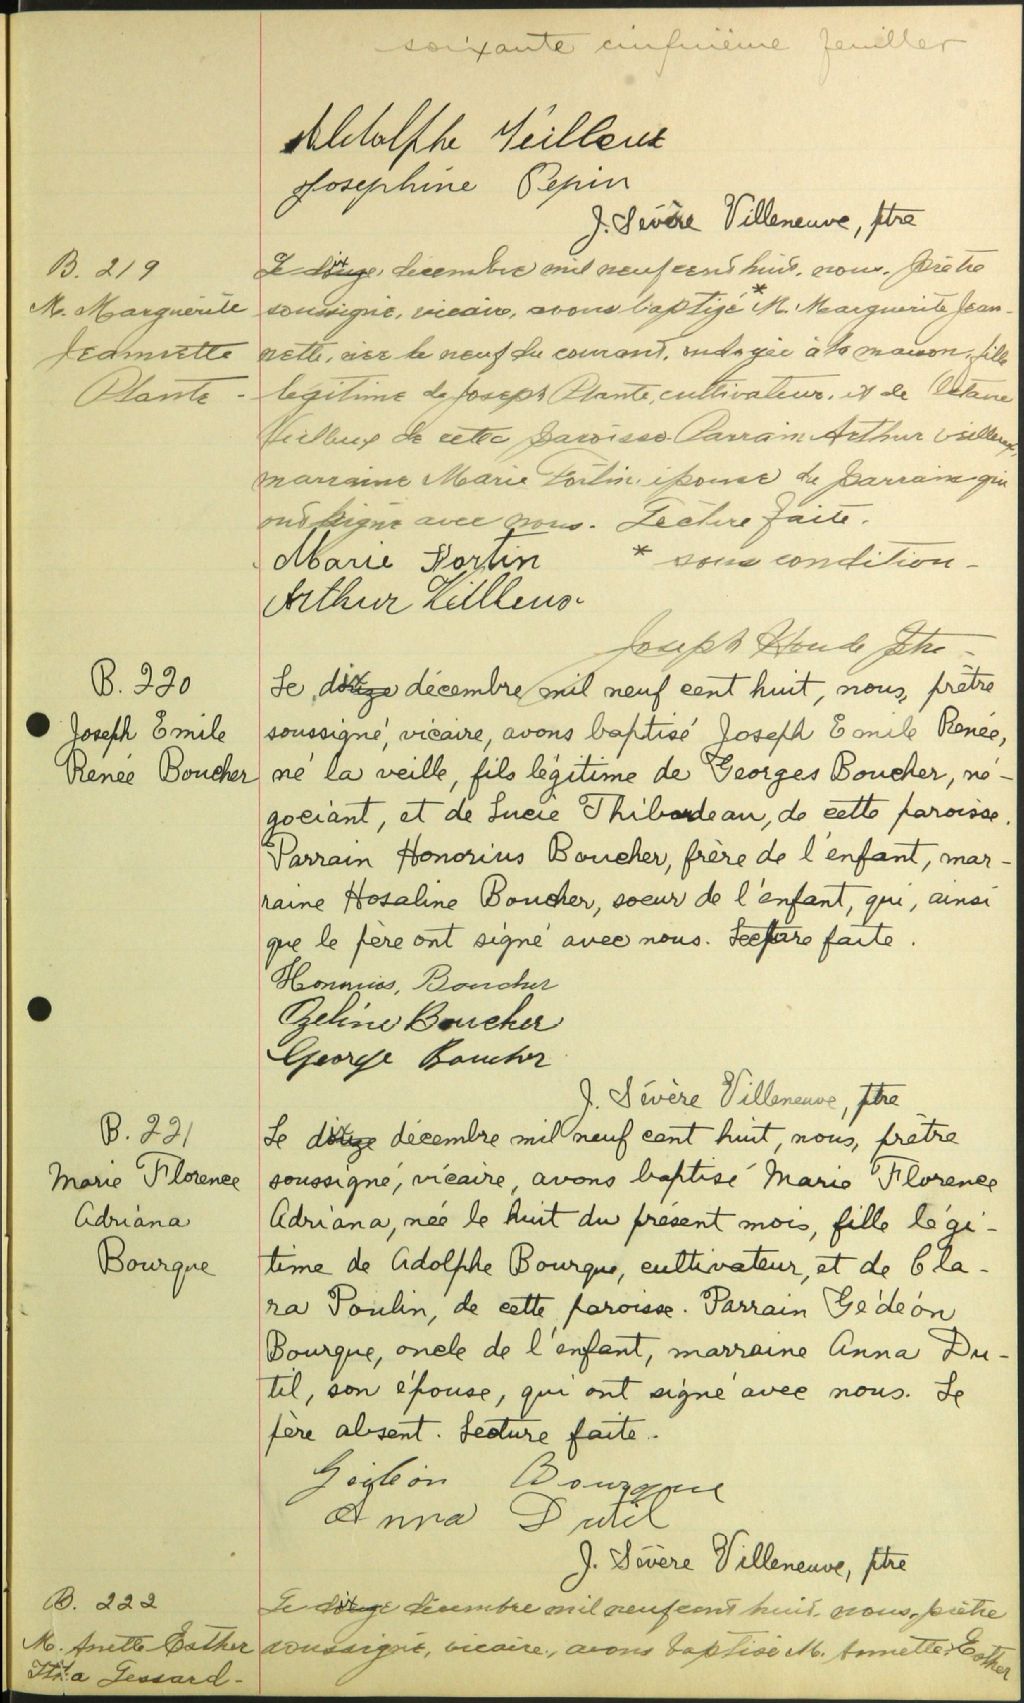 soixante cinquième feuillet
Aldolphe Veilleux
Josephine Pepin
J. Sévère Villeneuve, ptre
B. 219
M. Marguerite
Jeannette
Plante -
Le dix décembre mil neuf cent huit, nous, prêtre
soussigné, vicaire, avons baptisé * M. Marguerite Jean-
nette, née le neuf du courant, ondoyée à la maison, fille
légitime de Joseph Plante, cultivateur, et de
Veilleux de cette paroisse. Parrain Arthur Veilleux,
marraine Marie Fortin, épouse du parrain qui
ont signé avec nous. Lecture faite.
Marie Fortin
* sous condition -
Arthur Veilleux
Joseph Houde Ptre -
B. 220
Joseph Emile
Renée Boucher
Le dix décembre mil neuf cent huit, nous, prêtre
soussigné, vicaire, avons baptisé Joseph Emile Renée,
né la veille, fils légitime de Georges Boucher, né-
gociant, et de Lucie Thibodeau, de cette paroisse.
Parrain Honorius Boucher, frère de l'enfant, mar-
raine Hosaline Boucher, soeur de l'enfant, qui, ainsi
que le père ont signé avec nous. Lecture faite.
Honorius, Boucher
Ozeline Boucher
George Boucher
J. Sévère Villeneuve, ptre
B. 221
Marie Florence
Adriana
Bourque
Le dix décembre mil neuf cent huit, nous, prêtre
soussigné, vicaire, avons baptisé Marie Florence
Adriana, née le huit du présent mois, fille légi-
time de Adolphe Bourque, cultivateur, et de Cla-
ra Poulin, de cette paroisse. Parrain Gédéon
Bourque, oncle de l'enfant, marraine Anna Du-
til, son épouse, qui ont signé avec nous. Le
père absent. Lecture faite.
Bourque
Anna Dutil
J. Sévère Villeneuve, ptre
B. 222
M. Anette Esther
Lessard -
Le dix décembre mil neuf cent huit, nous, prêtre
soussigné, vicaire, avons baptisé M. Annette Esther